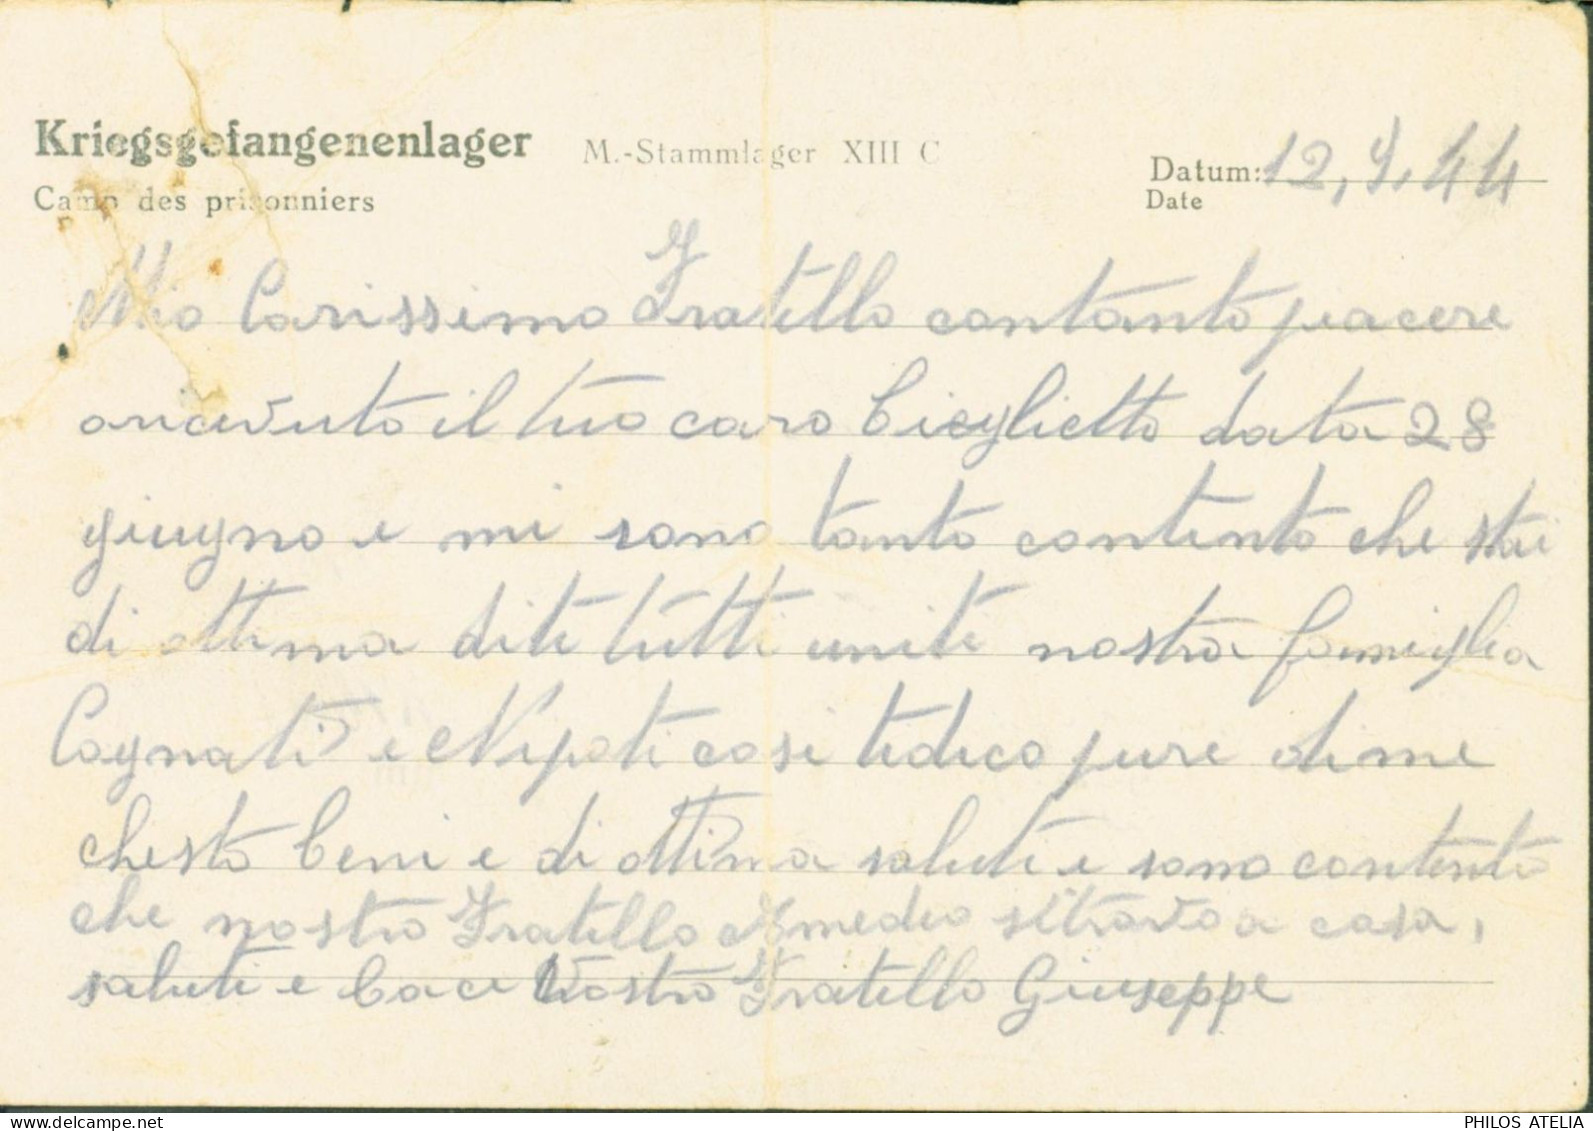 Kriegsgefangenenlager M.-Stammlager XIII C Datum: 12, 9, 44
Camp des prisonniers Date
Mio Carissimo Fratello contanto piacere
oricevuto il tuo caro bieglietto data 28
giugno e mi sono tanto contento che stai
di ottima dite tutti unite nostra famiglia
Cognati e Nipoti cosi tedico pure dime
chesto bene e di ottima salute e sono contento
che nostro Fratello Amedeo sitrova a casa,
salute e bace Vostro Fratello Giuseppe
PHILOS ATELIA